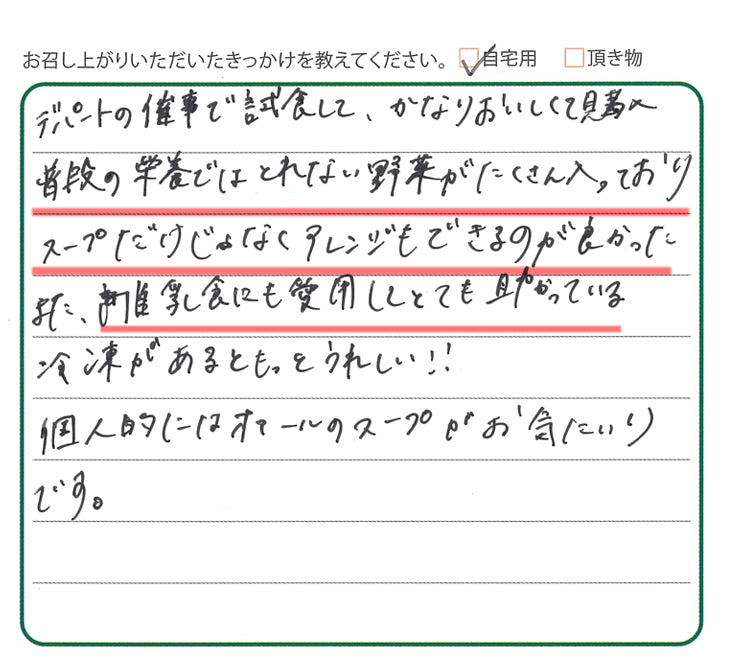 お召し上がりいただいたきっかけを教えてください。 自宅用 頂き物
デパートの催事で試食して、かなりおいしくて購入
普段の栄養ではとれない野菜がたくさん入っており
スープだけじゃなくアレンジもできるのが良かった
また、離乳食にも愛用してとても助かっている
冷凍があるともっとうれしい!!
個人的にはオマールのスープがお気にいり
です。